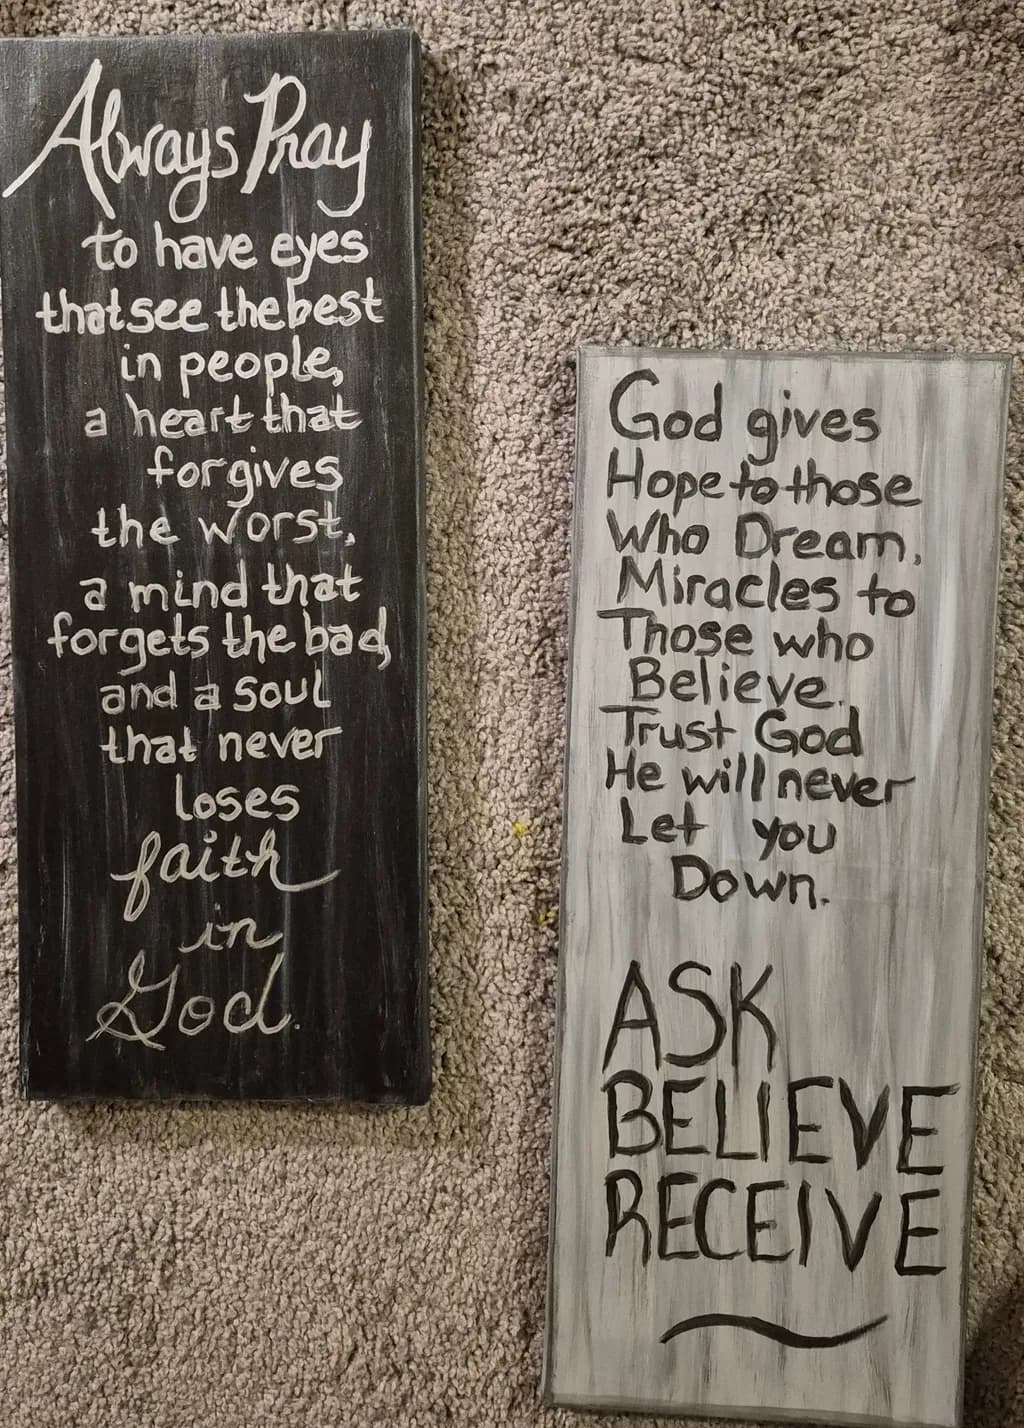 Always Pray
to have eyes
that see the best
in people,
a heart that
forgives
the worst,
a mind that
forgets the bad,
and a soul
that never
loses
faith
in
God.
God gives
Hope to those
Who Dream,
Miracles to
Those who
Believe.
Trust God
He will never
Let you
Down.
ASK
BELIEVE
RECEIVE